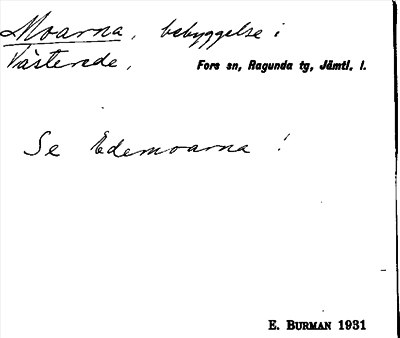 Moarna, bebyggelse i
Västerede, Fors sn, Ragunda tg, Jämtl. l.
Se Edemoarna!
E. BURMAN 1931